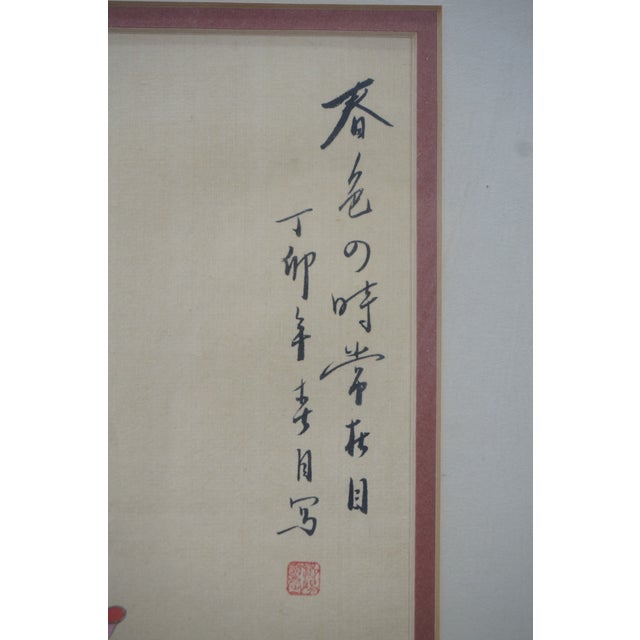 春色四時常在目
丁卯年春月写